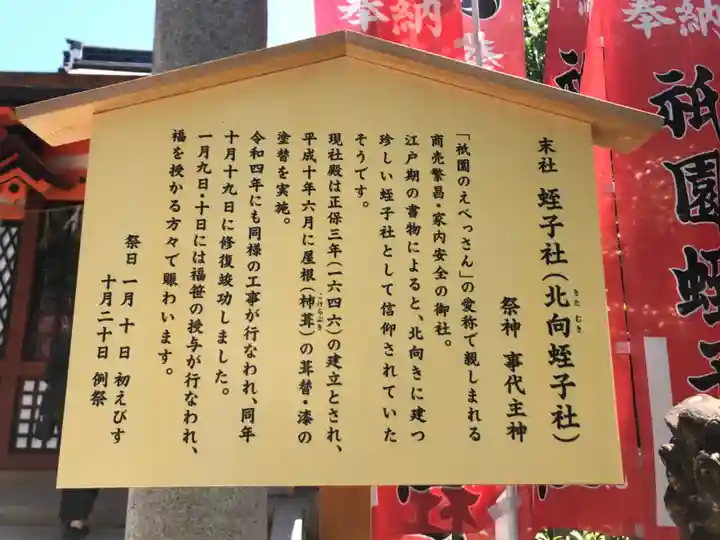 末社 蛭子社（北向蛭子社）
きた むき
祭神 事代主神
「祇園のえべっさん」の愛称で親しまれる
商売繁昌・家内安全の御社。
江戸期の書物によると、北向きに建つ
珍しい蛭子社として信仰されていた
そうです。
現社殿は正保三年（一六四六）の建立とされ、
平成十年六月に屋根（杮葺）の葺替・漆の
こけらぶき
塗替を実施。
令和四年にも同様の工事が行なわれ、同年
十月十九日に修復竣功しました。
一月九日・十日には福笹の授与が行なわれ、
福を授かる方々で賑わいます。
祭日 一月 十 日 初えびす
十月二十日 例祭
奉納
祇園蛭子
奉納